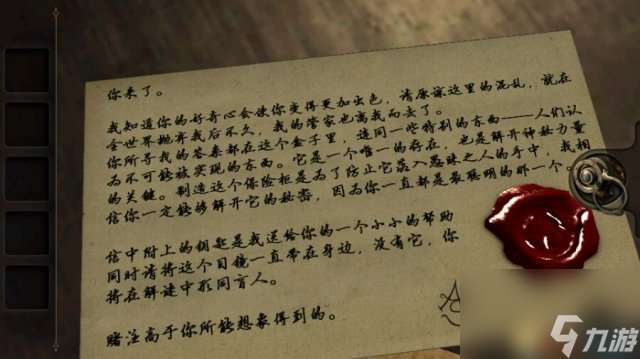 你来了。
我知道你的好奇心会使你变得更加出色，请原谅这里的混乱，就在
全世界抛弃我后不久，我的管家也离我而去了。
你所寻找的答案都在这个盒子里，连同一些特别的东西——人们认
为不可能被实现的东西。它是一个唯一的存在，也是解开神秘力量
的关键。制造这个保险柜是为了防止它落入愚昧之人的手中，我相
信你一定能够解开它的秘密，因为你一直都是最聪明的那一个
信中附上的钥匙是我送给你的一个小小的帮助
同时请将这个目镜一直带在身边，没有它，你
将在解谜中形同盲人。
赌注高于你所能想象得到的。
九游